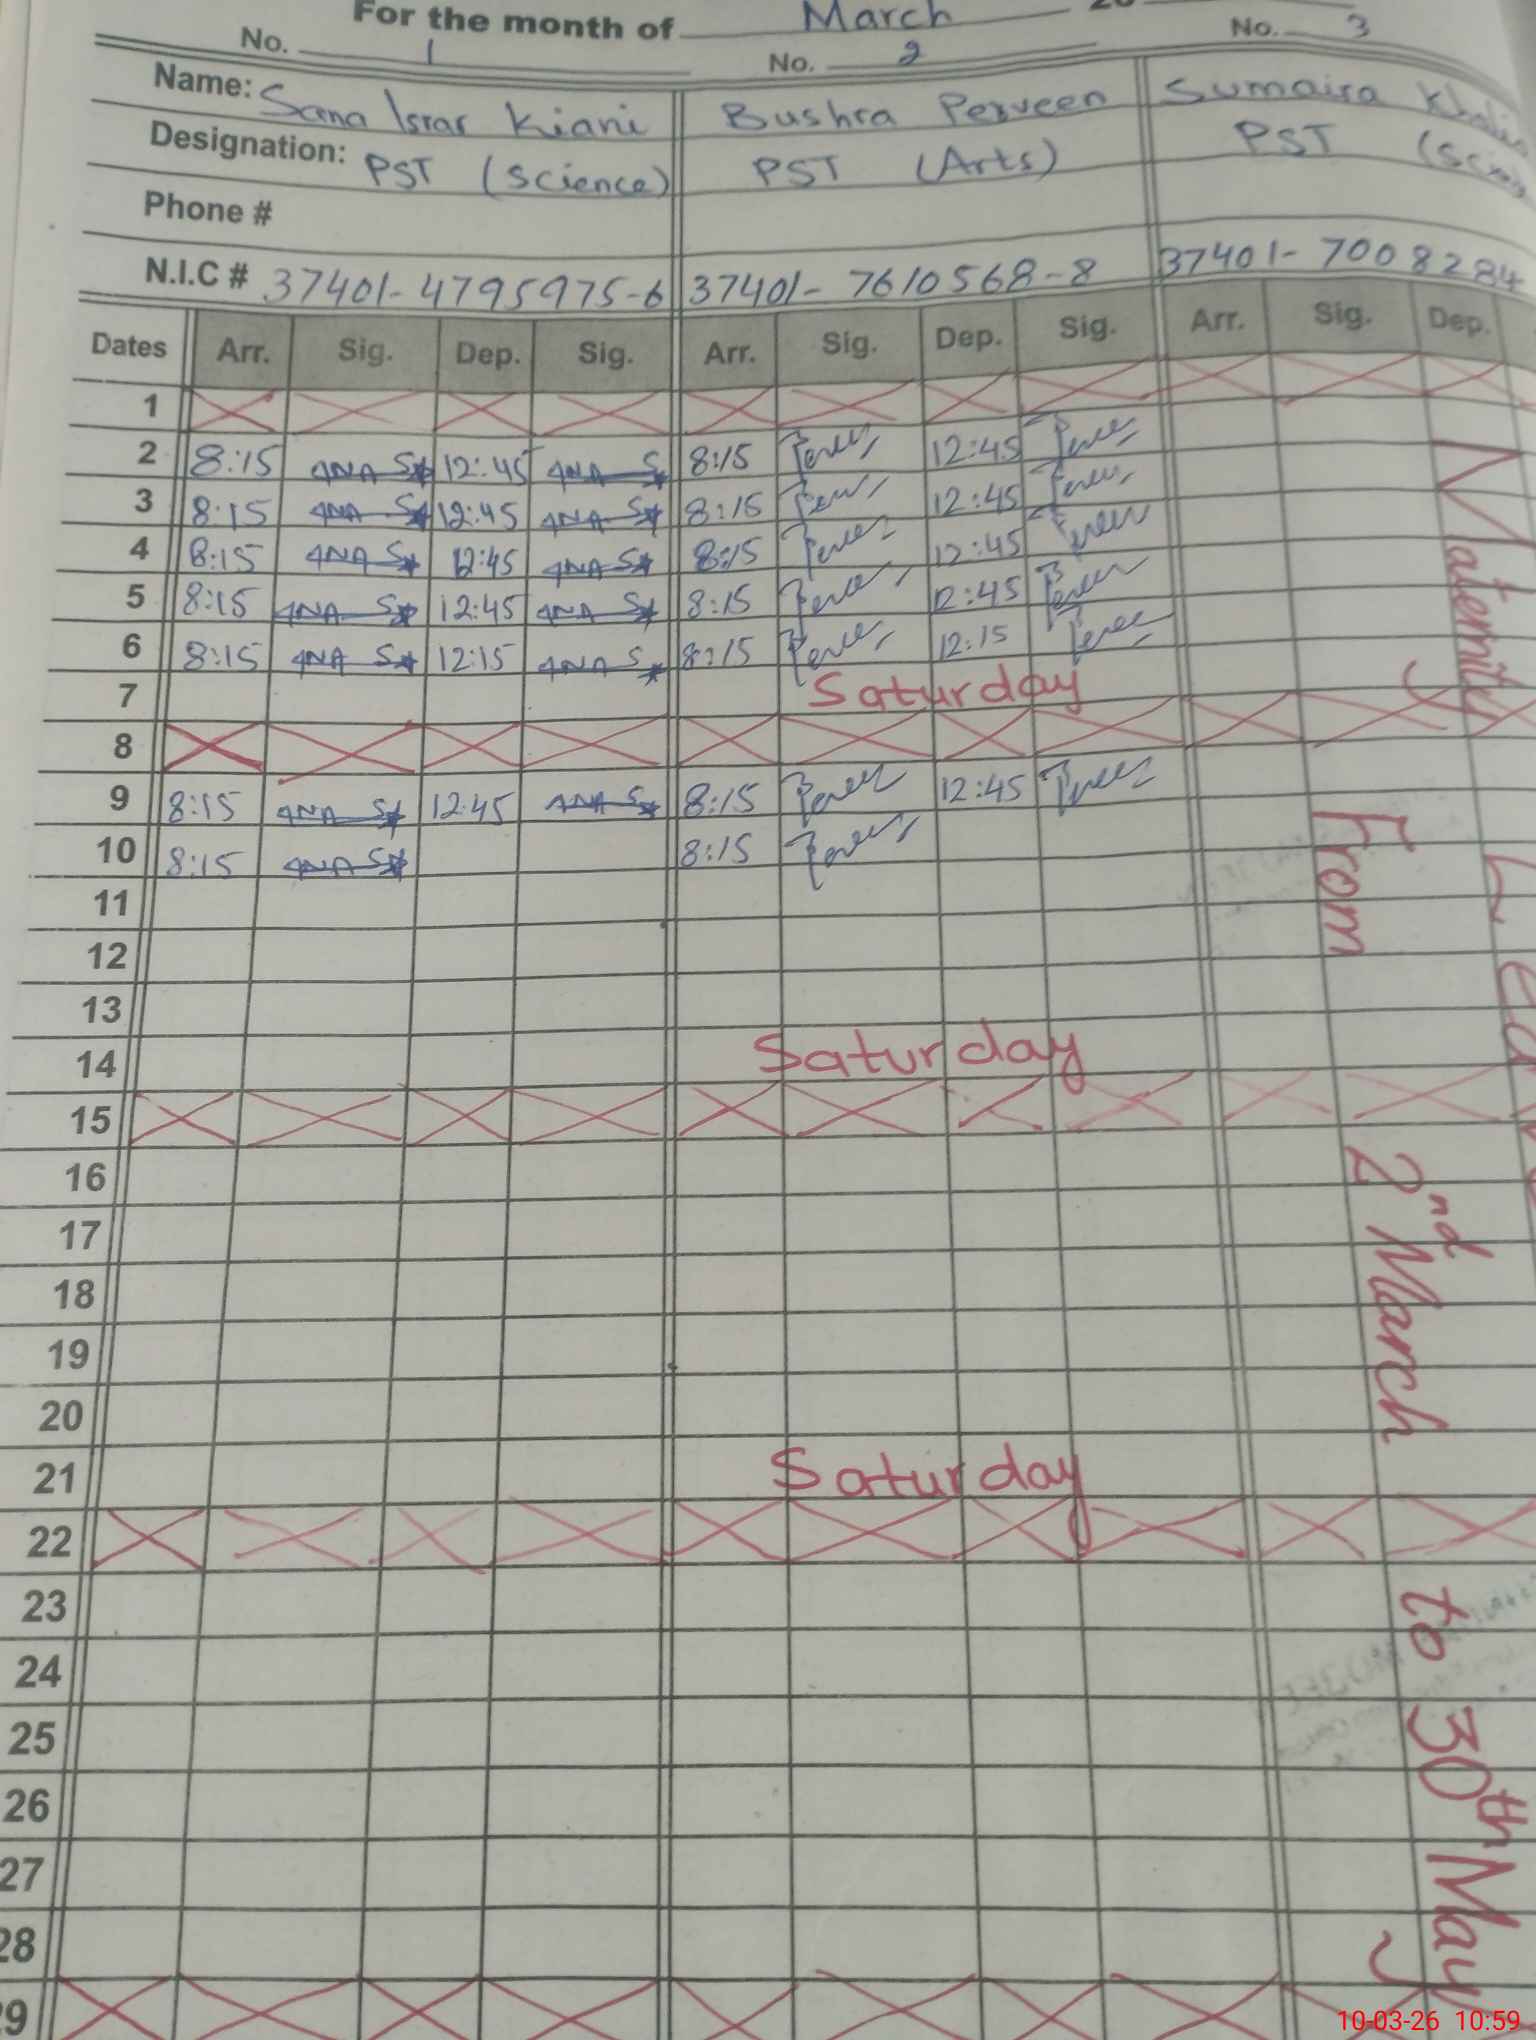 For the month of March 20
No. 1 No. 2 No. 3
Name: Sana Israr Kiani Bushra Perveen Sumaira
Designation: PST (Science) PST (Arts) PST
Phone #
N.I.C # 37401-4795975-6 37401- 7610568-8 37401- 7008284
Dates Arr. Sig. Dep. Sig. Arr. Sig. Dep. Sig. Arr. Sig. Dep.
1
2 8:15 12:45 8:15 12:45
3 8:15 12:45 8:15 12:45
4 8:15 12:45 8:15 12:45
5 8:15 12:45 8:15 12:45
6 8:15 12:15 8:15 12:15
7 Saturday
8
9 8:15 12:45 8:15 12:45
10 8:15 8:15
11
12
13
14 Saturday
15
16
17
18
19
20
21 Saturday
22
23
24
25
26
27
28
29
Maternity
From 2nd March to 30th May
10-03-26 10:59